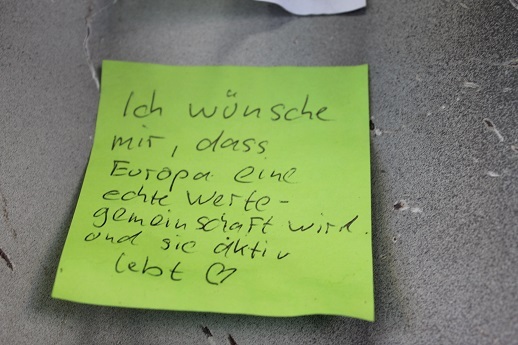 Ich wünsche
mir, dass
Europa eine
echte Werte-
gemeinschaft wird
und sie aktiv
lebt ♡